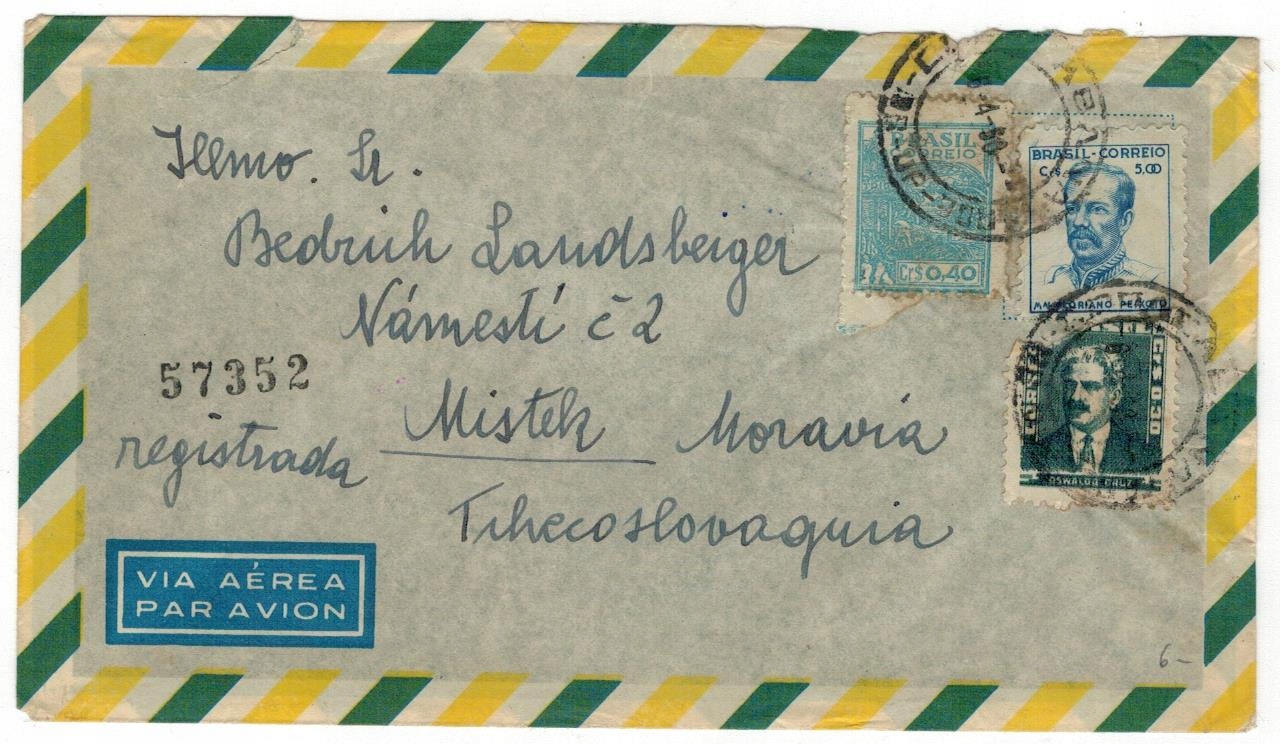 Illmo. Sr.
Bedrich Landsberger
Námestí č 2
Mistek Moravia
Tchecoslovaquia
57352
registrada
VIA AÉREA
PAR AVION
BRASIL
CORREIO
Cr$ 0,40
BRASIL-CORREIO
Cr$ 5,00
MAL FLORIANO PEIXOTO
OSWALDO CRUZ
6-